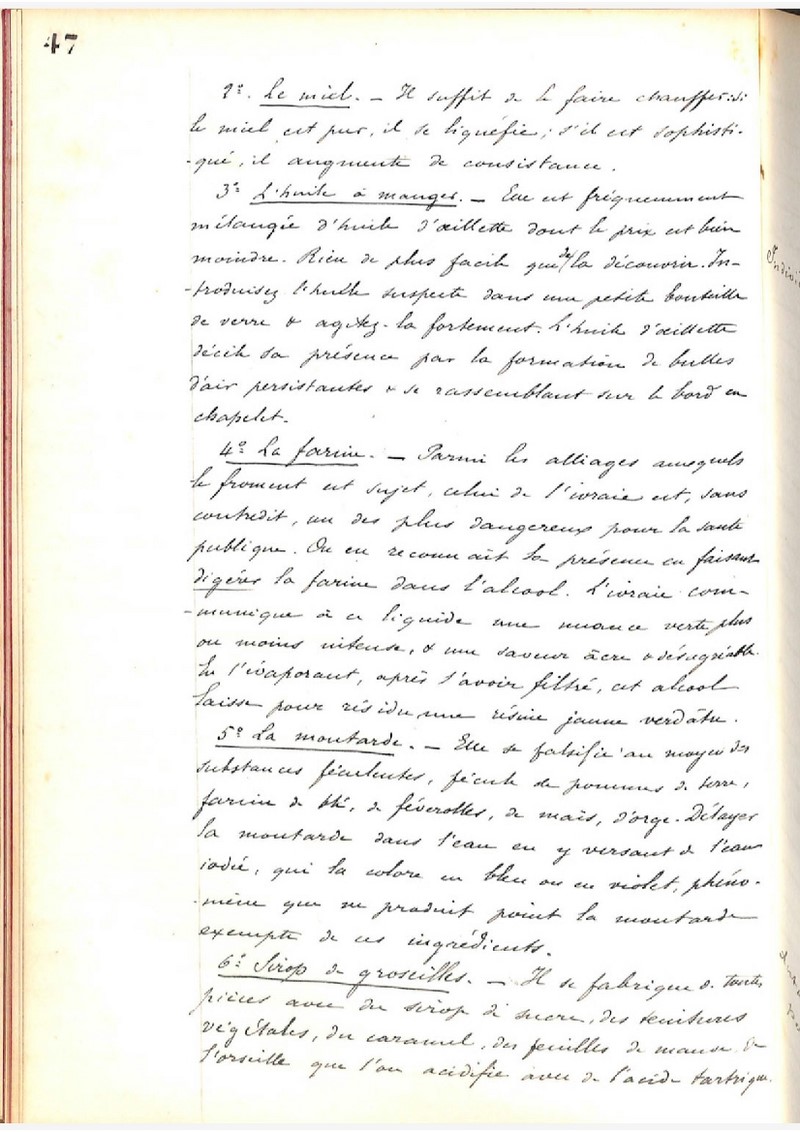 47
2º. Le miel. — Il suffit de le faire chauffer: si
le miel est pur, il se liquéfie; s'il est sophisti-
-qué, il augmente de consistance.
3º L'huile à manger. — Elle est fréquemment
mélangée d'huile d'œillette dont le prix est bien
moindre. Rien de plus facile que de la découvrir. In-
-troduisez l'huile suspecte dans une petite bouteille
de verre & agitez-la fortement. L'huile d'œillette
décèle sa présence par la formation de bulles
d'air persistantes & se rassemblant sur le bord en
chapelet.
4º La farine. — Parmi les alliages auxquels
le froment est sujet, celui de l'ivraie est, sans
contredit, un des plus dangereux pour la santé
publique. On en reconnaît la présence en faisant
digérer la farine dans l'alcool. L'ivraie com-
-munique à ce liquide une nuance verte plus
ou moins intense, & une saveur âcre & désagréable.
En l'évaporant, après l'avoir filtré, cet alcool
laisse pour résidu une résine jaune verdâtre.
5º La moutarde. — Elle se falsifie au moyen des
substances féculentes, fécule de pommes de terre,
farine de blé, de féverolles, de maïs, d'orge. Délayer
la moutarde dans l'eau en y versant de l'eau
iodée, qui la colore en bleu ou en violet, phéno-
-mène que ne produit point la moutarde
exempte de ces ingrédients.
6º Sirop de groseilles. — Il se fabrique de toutes
pièces avec du sirop de sucre, des teintures
végétales, du caramel, des feuilles de mauve, de
l'orseille que l'on acidifie avec de l'acide tartrique.